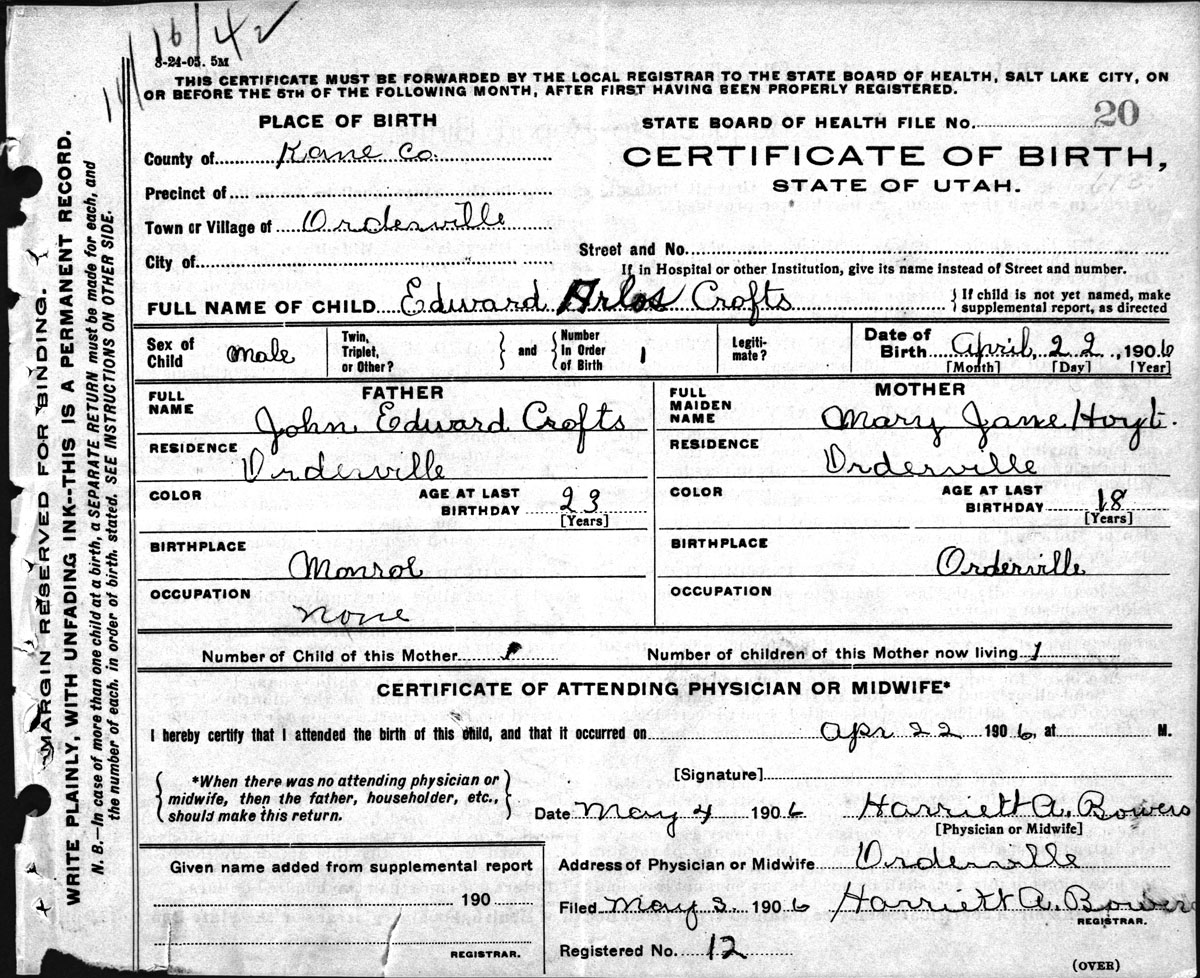 16/42
8-24-05. 5M
THIS CERTIFICATE MUST BE FORWARDED BY THE LOCAL REGISTRAR TO THE STATE BOARD OF HEALTH, SALT LAKE CITY, ON
OR BEFORE THE 5TH OF THE FOLLOWING MONTH, AFTER FIRST HAVING BEEN PROPERLY REGISTERED.
PLACE OF BIRTH
STATE BOARD OF HEALTH FILE No. 20
County of Kane Co.
CERTIFICATE OF BIRTH,
STATE OF UTAH.
Precinct of
Town or Village of Orderville
City of
Street and No.
If in Hospital or other Institution, give its name instead of Street and number.
FULL NAME OF CHILD Edward Arlos Crofts
{ If child is not yet named, make
supplemental report, as directed
Sex of Child Male
Twin, Triplet, or Other?
} and { Number In Order of Birth 1
Legiti- mate?
Date of Birth April 22, 1906
[Month] [Day] [Year]
FATHER
FULL NAME John Edward Crofts
RESIDENCE Orderville
COLOR
AGE AT LAST BIRTHDAY 23
[Years]
BIRTHPLACE Monroe
OCCUPATION None
MOTHER
FULL MAIDEN NAME Mary Jane Hoyt.
RESIDENCE Orderville
COLOR
AGE AT LAST BIRTHDAY 18
[Years]
BIRTHPLACE Orderville
OCCUPATION
Number of Child of this Mother 1
Number of children of this Mother now living 1
CERTIFICATE OF ATTENDING PHYSICIAN OR MIDWIFE*
I hereby certify that I attended the birth of this child, and that it occurred on Apr 22 1906, at M.
{ *When there was no attending physician or
midwife, then the father, householder, etc.,
should make this return. }
[Signature]
Date May 4 1906 Harriett A. Bowers
[Physician or Midwife]
Given name added from supplemental report
190
REGISTRAR.
Address of Physician or Midwife Orderville
Filed May 3 1906 Harriett A. Bowers
REGISTRAR.
Registered No. 12
(OVER)
MARGIN RESERVED FOR BINDING.
WRITE PLAINLY, WITH UNFADING INK--THIS IS A PERMANENT RECORD.
N. B.—In case of more than one child at a birth, a SEPARATE RETURN must be made for each, and
the number of each, in order of birth, stated. SEE INSTRUCTIONS ON OTHER SIDE.